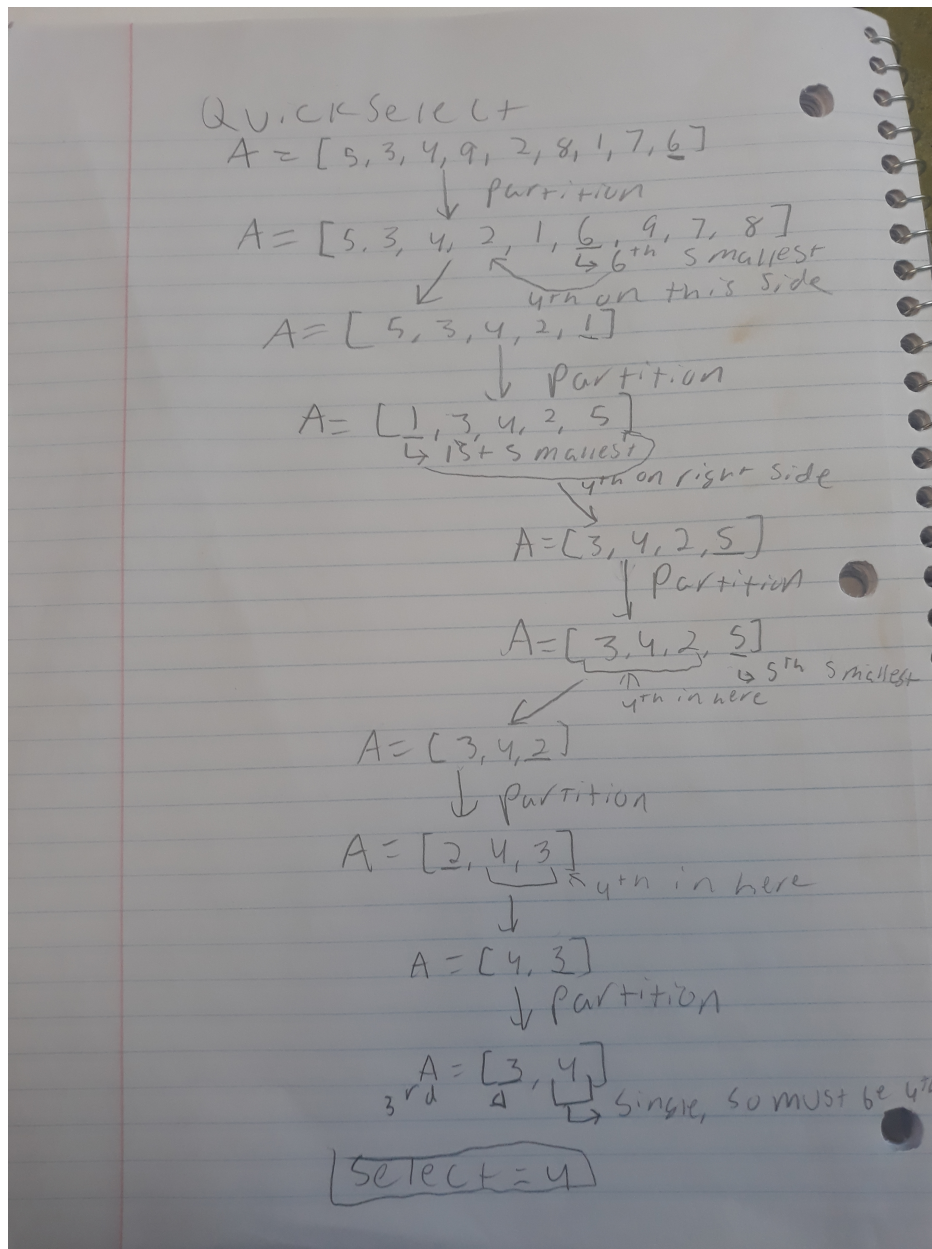 QuickSelect
A = [5, 3, 4, 9, 2, 8, 1, 7, 6]
Partition
A = [5, 3, 4, 2, 1, 6, 9, 7, 8]
↳ 6th smallest
4th on this side
A = [5, 3, 4, 2, 1]
Partition
A = [1, 3, 4, 2, 5]
↳ 1st smallest
4th on right side
A = [3, 4, 2, 5]
Partition
A = [3, 4, 2, 5]
↳ 5th smallest
4th in here
A = [3, 4, 2]
Partition
A = [2, 4, 3]
4th in here
A = [4, 3]
Partition
A = [3, 4]
3rd
Single, so must be 4th
Select = 4